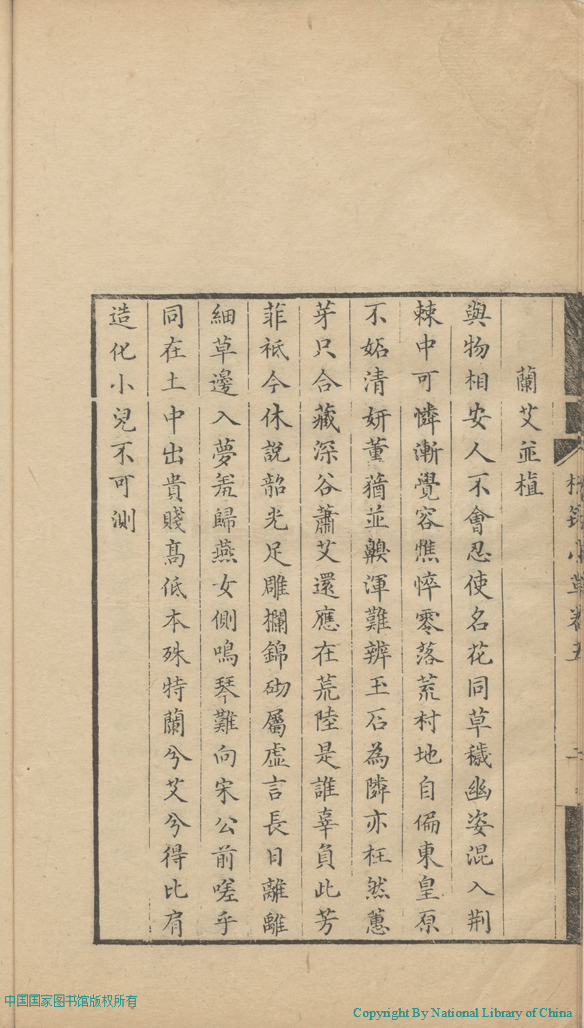 蘭艾並植
與物相安人不會忍使名花同草穢幽姿混入荆
棘中可憐漸覺容憔悴零落荒村地自偏東皇原
不妬清妍薰蕕並齅渾難辨玉石為隣亦枉然蕙
芽只合藏深谷蕭艾還應在荒陸是誰辜負此芳
菲衹今休說韶光足雕欄錦砌屬虛言長日離離
細草邊入夢羌歸燕女側鳴琴難向宋公前嗟乎
同在土中出貴賤高低本殊特蘭兮艾兮得比肩
造化小兒不可測
小草卷五
中国国家图书馆版权所有
Copyright By National Library of China